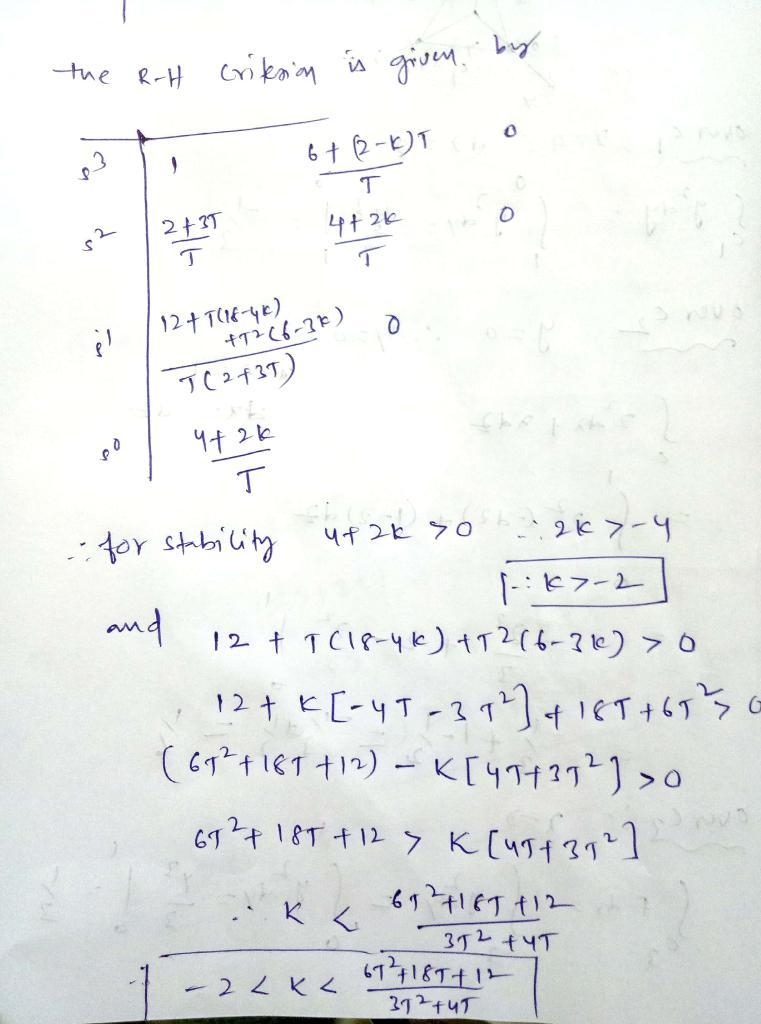 the R-H Criterion is given by
s³ 1 6+(2-K)T/T 0
s² 2+3T/T 4+2K/T 0
s¹ 12+T(18-4K)+T²(6-3K)/T(2+3T) 0
s⁰ 4+2K/T
∴ for stability 4+2K>0 ∴ 2K>-4
∴ K>-2
and 12 + T(18-4K)+T²(6-3K) > 0
12+ K[-4T-3T²]+18T+6T²> 0
(6T²+18T+12) - K[4T+3T²]>0
6T²+18T+12 > K[4T+3T²]
∴ K < 6T²+18T+12/3T²+4T
∴ -2<K< 6T²+18T+12/3T²+4T